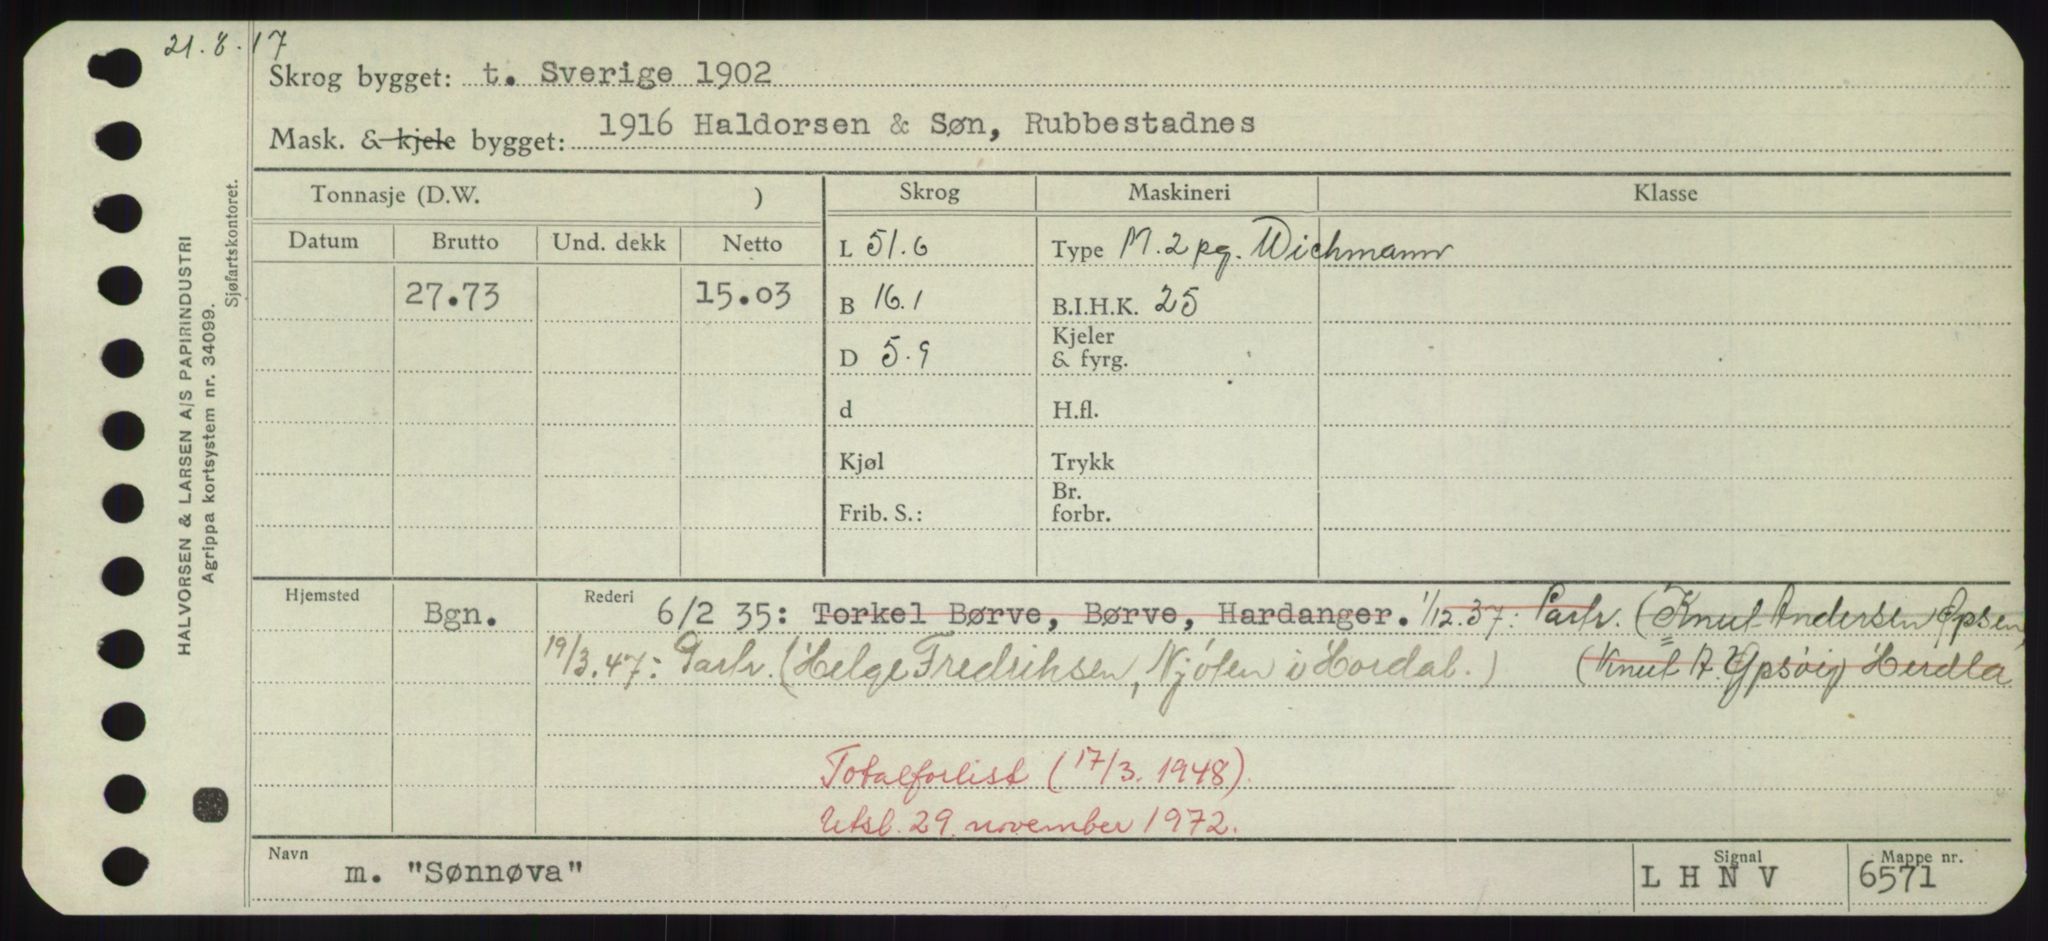 21.8.17
Skrog bygget: t. Sverige 1902
Mask. & kjele bygget: 1916 Haldorsen & Søn, Rubbestadnes
Tonnasje (D.W. ) Skrog Maskineri Klasse
Datum Brutto Und. dekk Netto L 51.6 Type M. 2 pg. Wichmann
27.73 15.03 B 16.1 B.I.H.K. 25
D 5.9 Kjeler
& fyrg.
d H.fl.
Kjøl Trykk
Frib. S.: Br.
forbr.
Hjemsted Bgn. Rederi 6/2 35: Torkel Børve, Børve, Hardanger. 1/12.37: Partr. (Knut Andersen
19/3.47: Partr. (Helge Fredriksen, i Hordal.) (Knut A. Herdla
Totalforlist (17/3.1948).
Utsl. 29. november 1972.
Navn m. "Sønnøva" Signal L H N V Mappe nr. 6571
HALVORSEN & LARSEN A/S PAPIRINDUSTRI
Agrippa kortsystem nr. 34099.
Sjøfartskontoret.